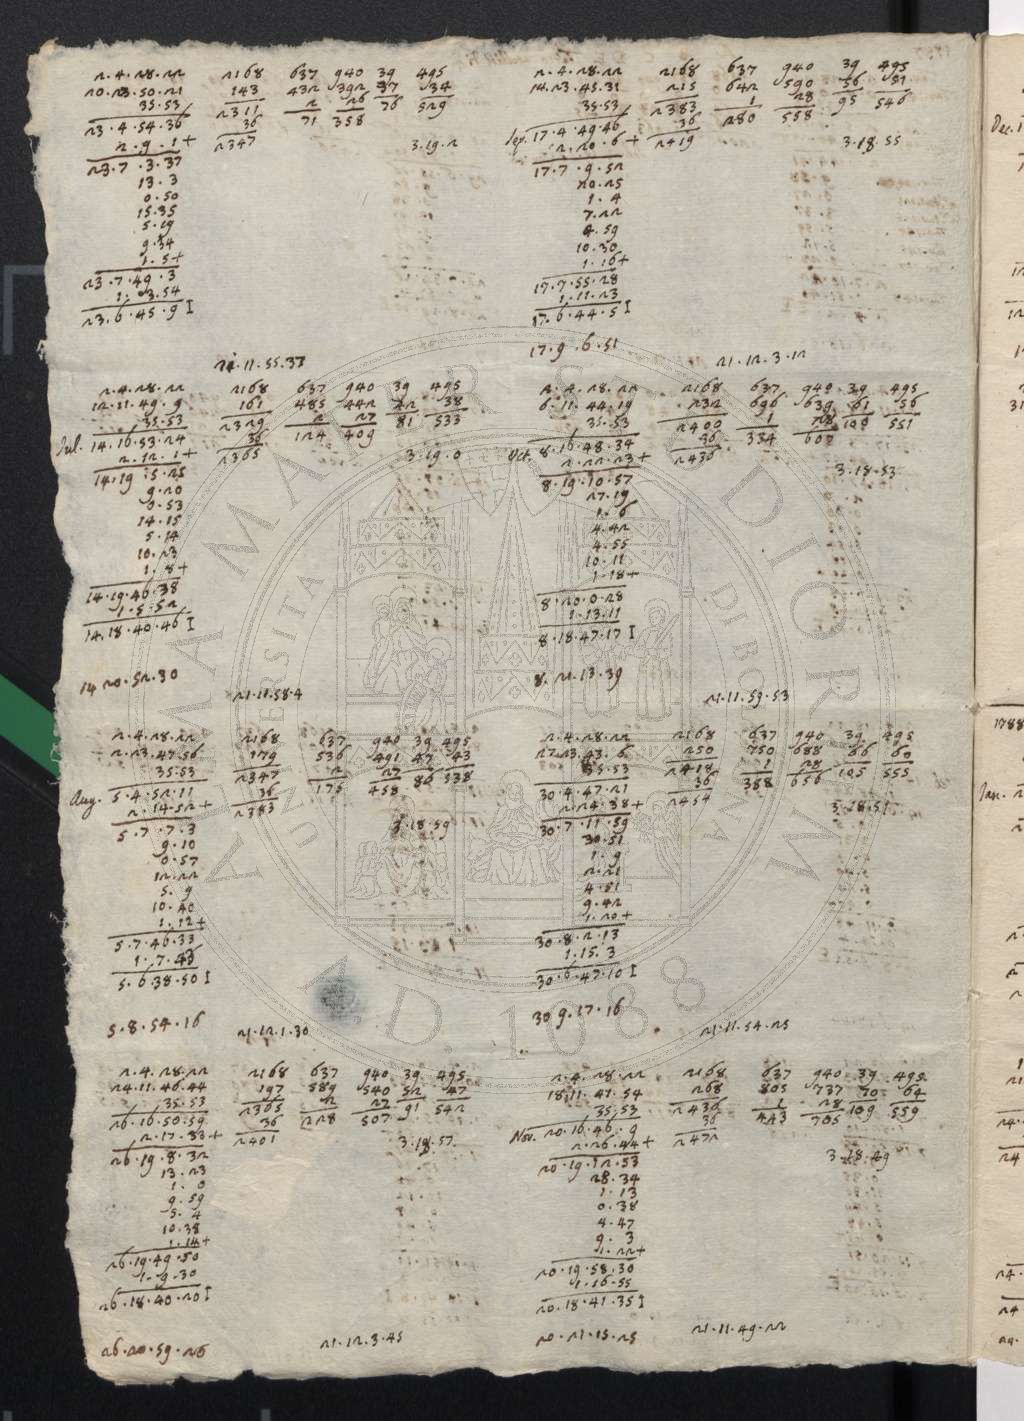 2.4.28.22 2168 637 940 39 495
20.23.50.21 143 432 392 37 34
35.53 2311 2 26 76 529
23.4.54.36 36 71 358
2.9.1+ 2347 3.19.2
23.7.3.37
13.3
0.50
15.35
5.19
9.34
1.5+
23.7.49.3
1.3.54
23.6.45.9 I
21.11.55.37
2.4.28.22 2168 637 940 39 495
12.11.49.9 161 485 442 42 38
35.53 2329 2 27 81 533
Jul. 14.16.53.24 36 124 409
2.12.1+ 2365 3.19.0
14.19.5.25
9.20
0.53
14.15
5.14
10.23
1.8+
14.19.46.38
1.5.52
14.18.40.46 I
14 20.52.30
21.11.58.4
2.4.28.22 2168 637 940 39 495
2.23.47.56 179 536 491 47 43
35.53 2347 2 27 86 538
Aug. 5.4.52.11 36 175 458
2.14.52+ 2383 3.18.59
5.7.7.3
9.10
0.57
12.22
5.9
10.40
1.12+
5.7.46.33
1.7.43
5.6.38.50 I
5.8.54.16
21.12.1.30
2.4.28.22 2168 637 940 39 495
24.11.46.44 197 589 540 52 47
35.53 2365 2 27 91 542
26.16.50.59 36 228 507
2.17.33+ 2401 3.18.57
26.19.8.32
13.23
1.0
9.59
5.4
10.38
1.14+
26.19.49.50
1.9.30
26.18.40.20 I
26.20.59.26
21.12.3.45
2.4.28.22 2168 637 940 39 495
14.23.45.31 215 642 590 56 51
35.53 2383 1 28 95 546
Sep. 17.4.49.46 36 280 558
2.20.6+ 2419 3.18.55
17.7.9.52
20.25
1.4
7.22
4.59
10.30
1.16+
17.7.55.28
1.11.23
17.6.44.5 I
17.9.6.51
21.12.3.12
2.4.28.22 2168 637 940 39 495
6.11.44.19 232 696 639 61 56
35.53 2400 1 28 100 551
Oct. 8.16.48.34 36 334 607
2.22.23+ 2436 3.18.53
8.19.10.57
27.19
1.6
4.42
4.55
10.11
1.18+
8.20.0.28
1.13.11
8.18.47.17 I
8.21.13.39
21.11.59.53
2.4.28.22 2168 637 940 39 495
27.23.43.6 250 750 688 66 60
35.53 2418 1 28 105 555
30.4.47.21 36 388 656
2.24.38+ 2454 3.18.51
30.7.11.59
30.51
1.9
2.21
4.51
9.42
1.20+
30.8.2.13
1.15.3
30.6.47.10 I
30 9.17.16
21.11.54.25
2.4.28.22 2168 637 940 39 495
18.11.41.54 268 805 737 70 64
35.53 2436 1 28 109 559
Nov. 20.16.46.9 36 443 705
2.26.44+ 2472 3.18.49
20.19.12.53
28.34
1.13
0.38
4.47
9.3
1.22+
20.19.58.30
1.16.55
20.18.41.35 I
20.21.15.25
21.11.49.22
Dec.
1788
Jan.
ALMA MATER STUDIORUM
A.D. 1088